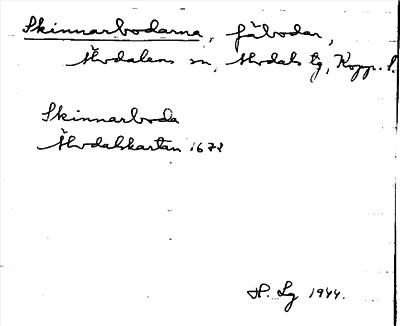 Skinnarbodarna, fäbodar,
Älvdalens sn, Älvdals tg, Kopp. l.
Skinnarboda
Älvdalskartan 1678
H. Lg 1944.